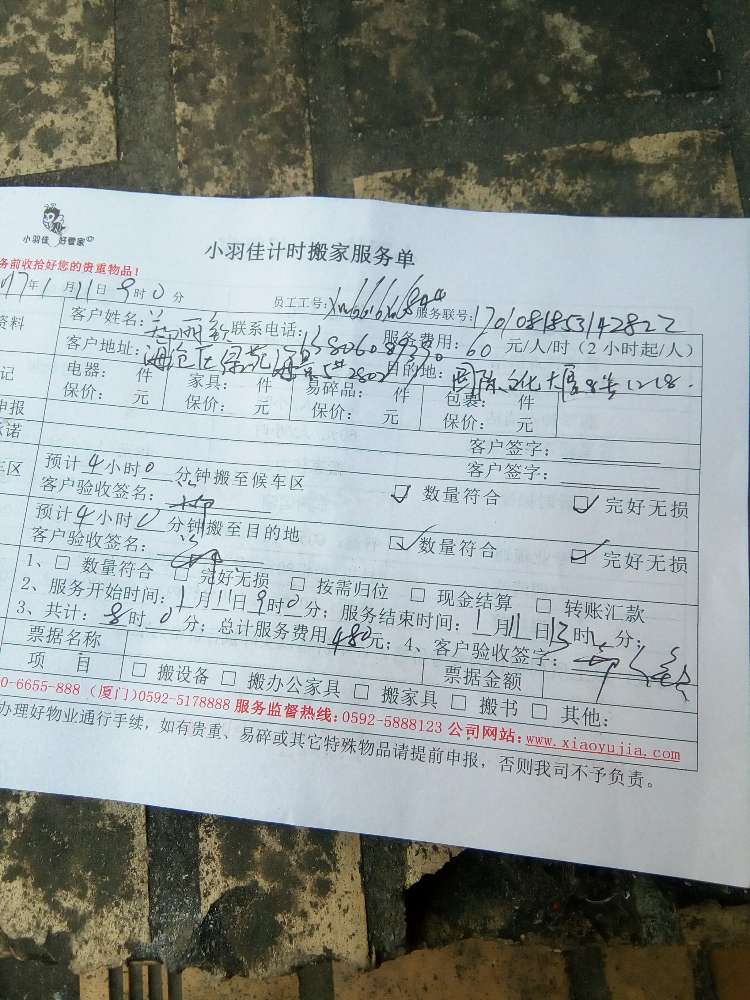 小羽佳 好管家
小羽佳计时搬家服务单
务前收拾好您的贵重物品！
17年1月11日9时0分 员工工号： 服务联号：1701081853142822
资料 客户姓名： 联系电话：13806089370 服务费用：60元/人/时（2小时起/人）
客户地址： 目的地：国际文化大厦 1218.
记 电器： 件 家具： 件 易碎品： 件 包裹： 件
保价： 元 保价： 元 保价： 元 保价： 元
申报 客户签字：
承诺 客户签字：
车区 预计4小时0分钟搬至候车区 ☑ 数量符合 ☑ 完好无损
客户验收签名：
预计4小时0分钟搬至目的地 ☑ 数量符合 ☑ 完好无损
客户验收签名：
1、□ 数量符合 □ 完好无损 □ 按需归位 □ 现金结算 □ 转账汇款
2、服务开始时间：1月11日9时0分；服务结束时间：1月11日13时 分；
3、共计：8时0分；总计服务费用480元；4、客户验收签字：
票据名称 票据金额
项 目 □ 搬设备 □ 搬办公家具 □ 搬家具 □ 搬书 □ 其他：
0-6655-888（厦门）0592-5178888 服务监督热线：0592-5888123 公司网站：www.xiaoyujia.com
办理好物业通行手续，如有贵重、易碎或其它特殊物品请提前申报，否则我司不予负责。